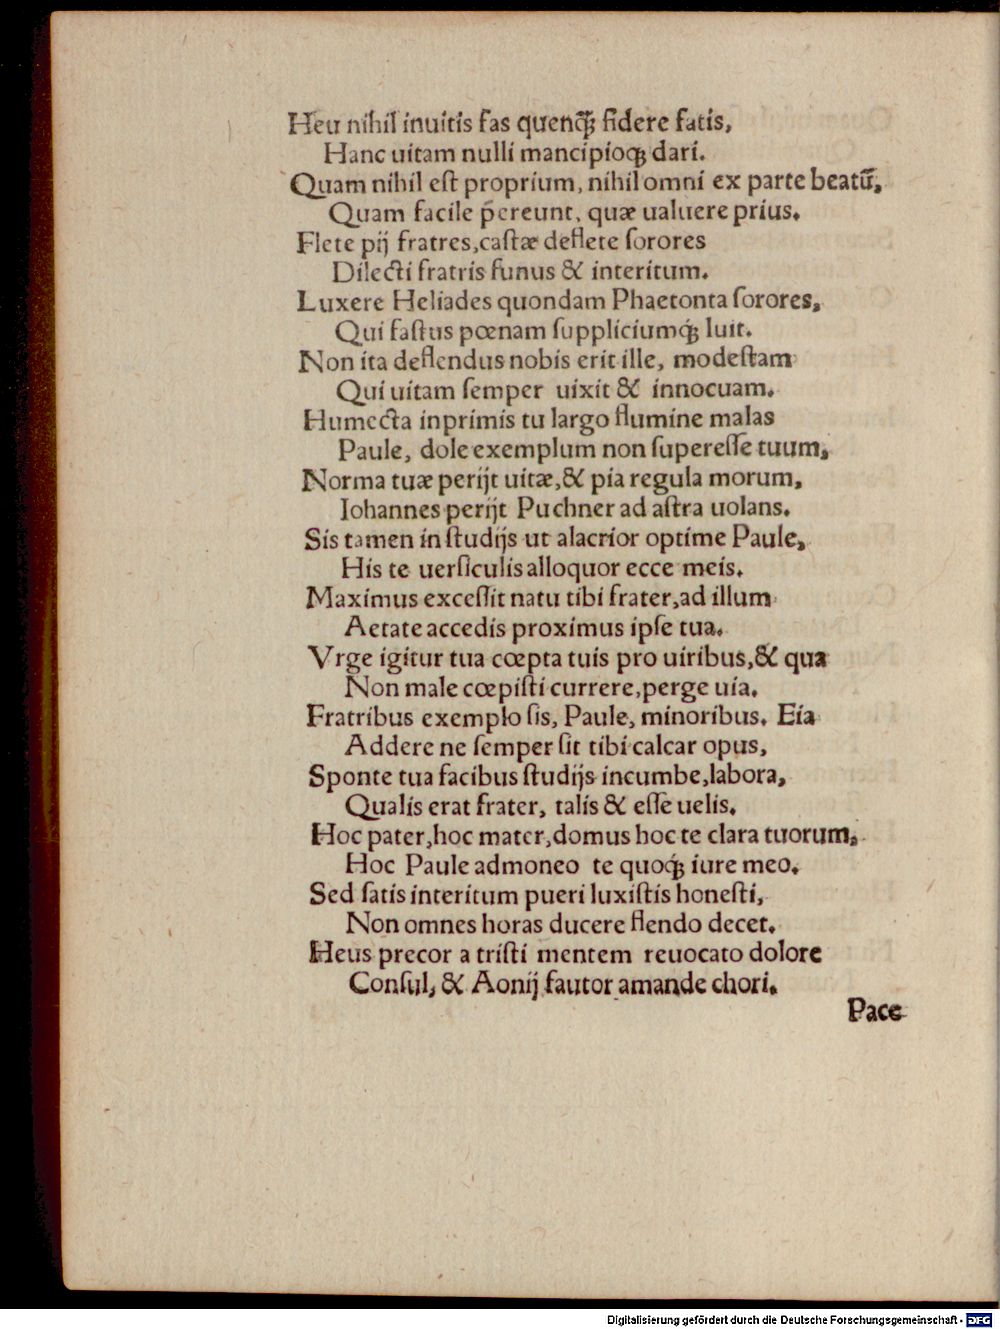 Heu nihil inuitis fas quenq̃ꝫ fidere fatis,
Hanc uitam nulli mancipioqꝫ dari.
Quam nihil est proprium, nihil omni ex parte beatũ,
Quam facile pereunt, quæ ualuere prius.
Flete pij fratres, castæ deflete sorores
Dilecti fratris funus & interitum.
Luxere Heliades quondam Phaetonta sorores,
Qui fastus pœnam suppliciumq́ꝫ luit.
Non ita deflendus nobis erit ille, modestam
Qui uitam semper uixit & innocuam.
Humecta inprimis tu largo flumine malas
Paule, dole exemplum non superesse tuum,
Norma tuæ perijt uitæ, & pia regula morum,
Iohannes perijt Puchner ad astra uolans.
Sis tamen in studijs ut alacrior optime Paule,
His te uersiculis alloquor ecce meis.
Maximus excessit natu tibi frater, ad illum
Aetate accedis proximus ipse tua.
Vrge igitur tua cœpta tuis pro uiribus, & qua
Non male cœpisti currere, perge uia.
Fratribus exemplo sis, Paule, minoribus. Eia
Addere ne semper sit tibi calcar opus,
Sponte tua facibus studijs incumbe, labora,
Qualis erat frater, talis & esse uelis.
Hoc pater, hoc mater, domus hoc te clara tuorum,
Hoc Paule admoneo te quoq́ꝫ iure meo.
Sed satis interitum pueri luxistis honesti,
Non omnes horas ducere flendo decet.
Heus precor a tristi mentem reuocato dolore
Consul, & Aonij fautor amande chori.
Pace
Digitalisierung gefördert durch die Deutsche Forschungsgemeinschaft - DFG